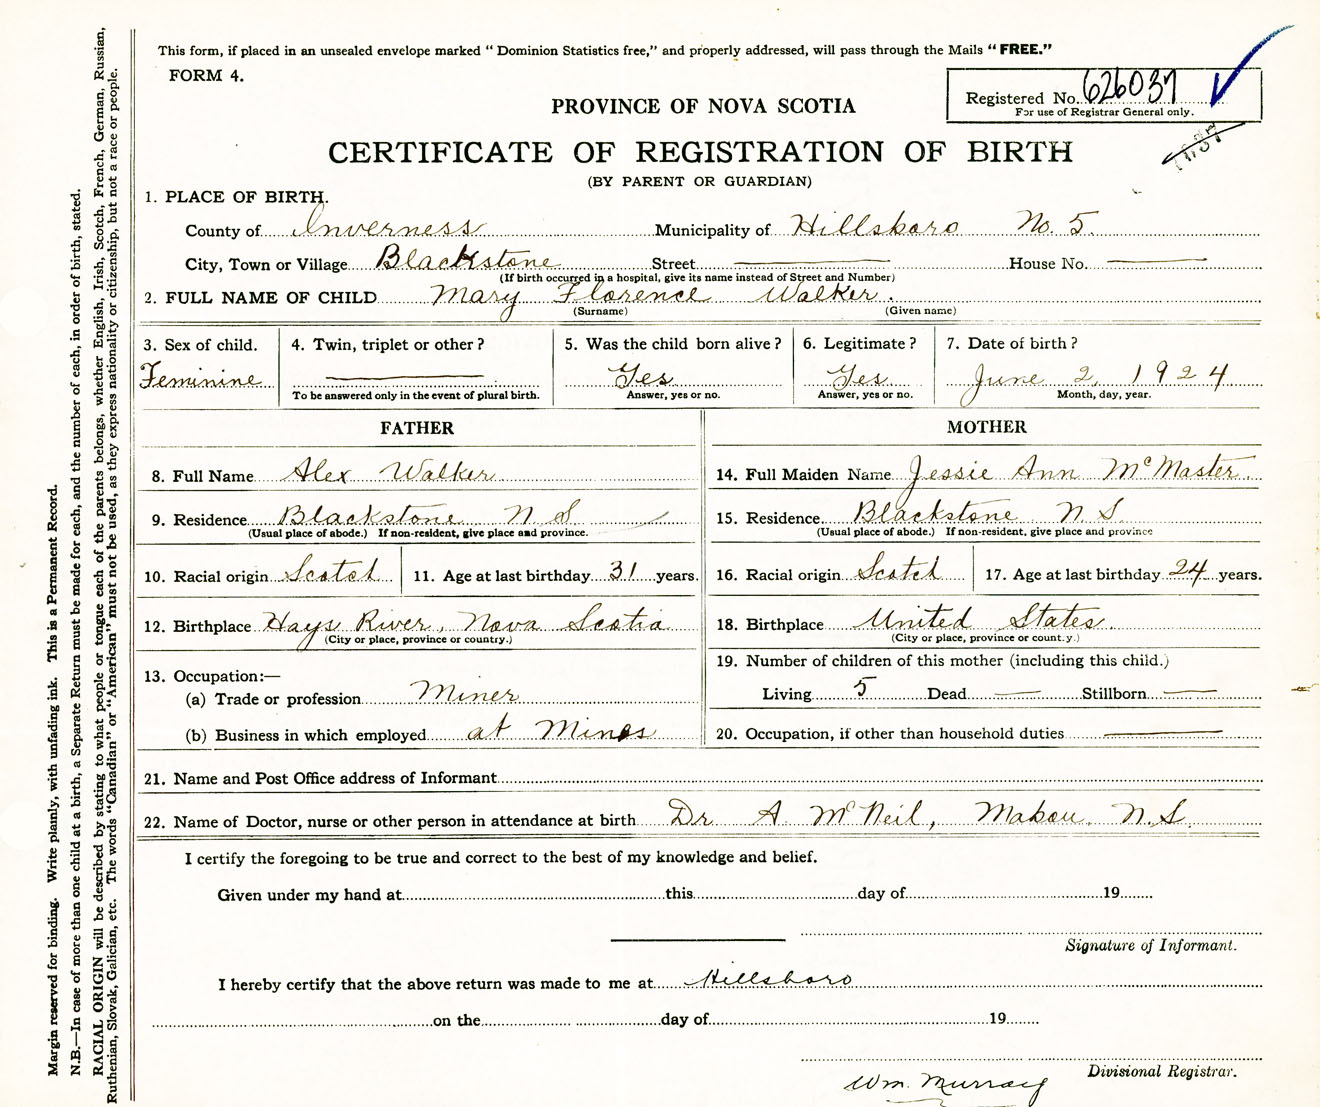 This form, if placed in an unsealed envelope marked "Dominion Statistics free," and properly addressed, will pass through the Mails "FREE."
FORM 4.
Registered No. 626037
For use of Registrar General only.
PROVINCE OF NOVA SCOTIA
CERTIFICATE OF REGISTRATION OF BIRTH
(BY PARENT OR GUARDIAN)
1. PLACE OF BIRTH.
County of Inverness Municipality of Hillsboro No. 5
City, Town or Village Blackstone Street House No.
(If birth occurred in a hospital, give its name instead of Street and Number)
2. FULL NAME OF CHILD Mary Florence Walker.
(Surname) (Given name)
3. Sex of child. 4. Twin, triplet or other? 5. Was the child born alive? 6. Legitimate? 7. Date of birth?
Feminine Yes Yes June 2, 1924
To be answered only in the event of plural birth. Answer, yes or no. Answer, yes or no. Month, day, year.
FATHER MOTHER
8. Full Name Alex Walker 14. Full Maiden Name Jessie Ann McMaster
9. Residence Blackstone N S 15. Residence Blackstone N S
(Usual place of abode.) If non-resident, give place and province. (Usual place of abode.) If non-resident, give place and province
10. Racial origin Scotch 11. Age at last birthday 31 years. 16. Racial origin Scotch 17. Age at last birthday 24 years.
12. Birthplace Hays River, Nova Scotia 18. Birthplace United States
(City or place, province or country.) (City or place, province or country.)
13. Occupation:— 19. Number of children of this mother (including this child.)
(a) Trade or profession Miner Living 5 Dead Stillborn
(b) Business in which employed at Mines 20. Occupation, if other than household duties
21. Name and Post Office address of Informant
22. Name of Doctor, nurse or other person in attendance at birth Dr. A McNeil, Mabou N.S.
I certify the foregoing to be true and correct to the best of my knowledge and belief.
Given under my hand at this day of 19
Signature of Informant.
I hereby certify that the above return was made to me at Hillsboro
on the day of 19
Divisional Registrar.
Wm. Murray
Margin reserved for binding. Write plainly, with unfading ink. This is a Permanent Record.
N.B.—In case of more than one child at a birth, a Separate Return must be made for each, and the number of each, in order of birth, stated.
RACIAL ORIGIN will be described by stating to what people or tongue each of the parents belongs, whether English, Irish, Scotch, French, German, Russian,
Ruthenian, Slovak, Galician, etc. The words "Canadian" or "American" must not be used, as they express nationality or citizenship, but not a race or people.